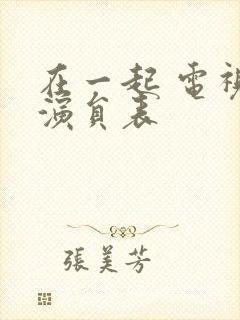 在一起 電視
演員表
張美芳